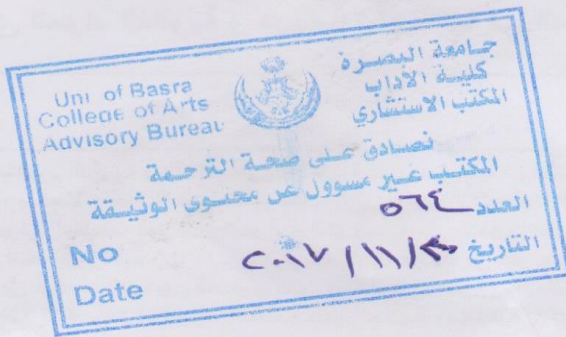 Uni of Basra
College of Arts
Advisory Bureau
جامعة البصرة
كلية الآداب
المكتب الاستشاري
نصادق على صحة الترجمة
المكتب غير مسؤول عن محتوى الوثيقة
العدد ٥٦٤
No
التاريخ / ١١ / ٢٠١٧
Date